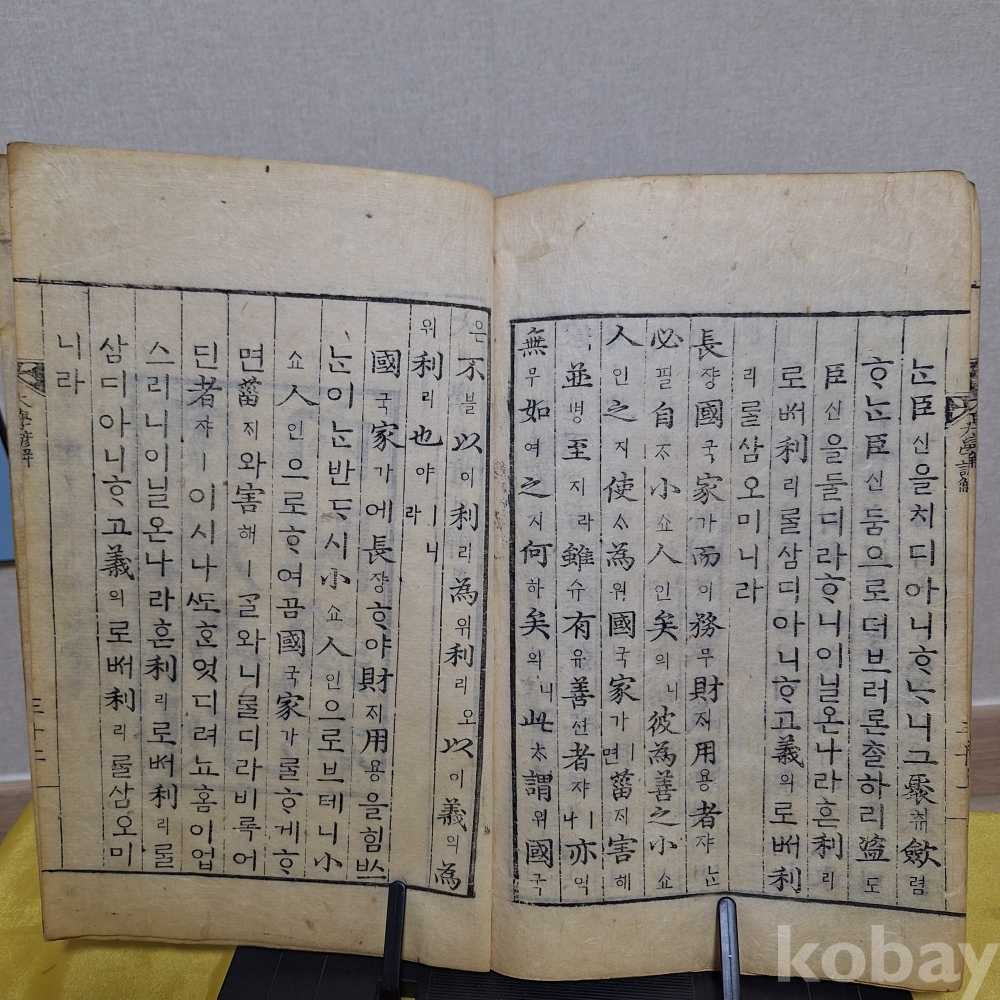 ᄂᆞᆫ臣신을치디아니ᄒᆞᄂᆞ니그聚취斂렴
ᄒᆞᄂᆞᆫ臣신둠으로더브러론ᄎᆞᆯ하리盜도
臣신을둘디라ᄒᆞ니이닐온나라흔利리
로ᄡᅥ利리ᄅᆞᆯ삼디아니ᄒᆞ고義의로ᄡᅥ利
리ᄅᆞᆯ삼오미니라
長쟝國국家가而이務무財ᄌᆡ用용者쟈ᄂᆞᆫ
必필自ᄌᆞ小쇼人인矣의니彼為善之小쇼
人인之지使ᄉᆞ為위國국家가ㅣ면菑ᄌᆡ害해
並병至지라雖슈有유善션者쟈ㅣ나亦역
無무如여之지何하矣의니此ᄎᆞ謂위國국
은不블以이利리為위利리오以이義의為
위利리也야ㅣ니라
國국家가에長쟝ᄒᆞ야財ᄌᆡ用용을힘ᄡᅳ
ᄂᆞᆫ이ᄂᆞᆫ반ᄃᆞ시小쇼人인으로브테니小
쇼人인으로ᄒᆞ여곰國국家가ᄅᆞᆯᄒᆞ게ᄒᆞ
면菑ᄌᆡ와害해ㅣᄀᆞᆯ와니ᄅᆞᆯ디라비록어
딘者쟈ㅣ이시나ᄯᅩᄒᆞᆫ엇디려뇨홈이업
스리니이닐온나라흔利리로ᄡᅥ利리ᄅᆞᆯ
삼디아니ᄒᆞ고義의로ᄡᅥ利리ᄅᆞᆯ삼오미
니라
大學諺解
三十二
kobay